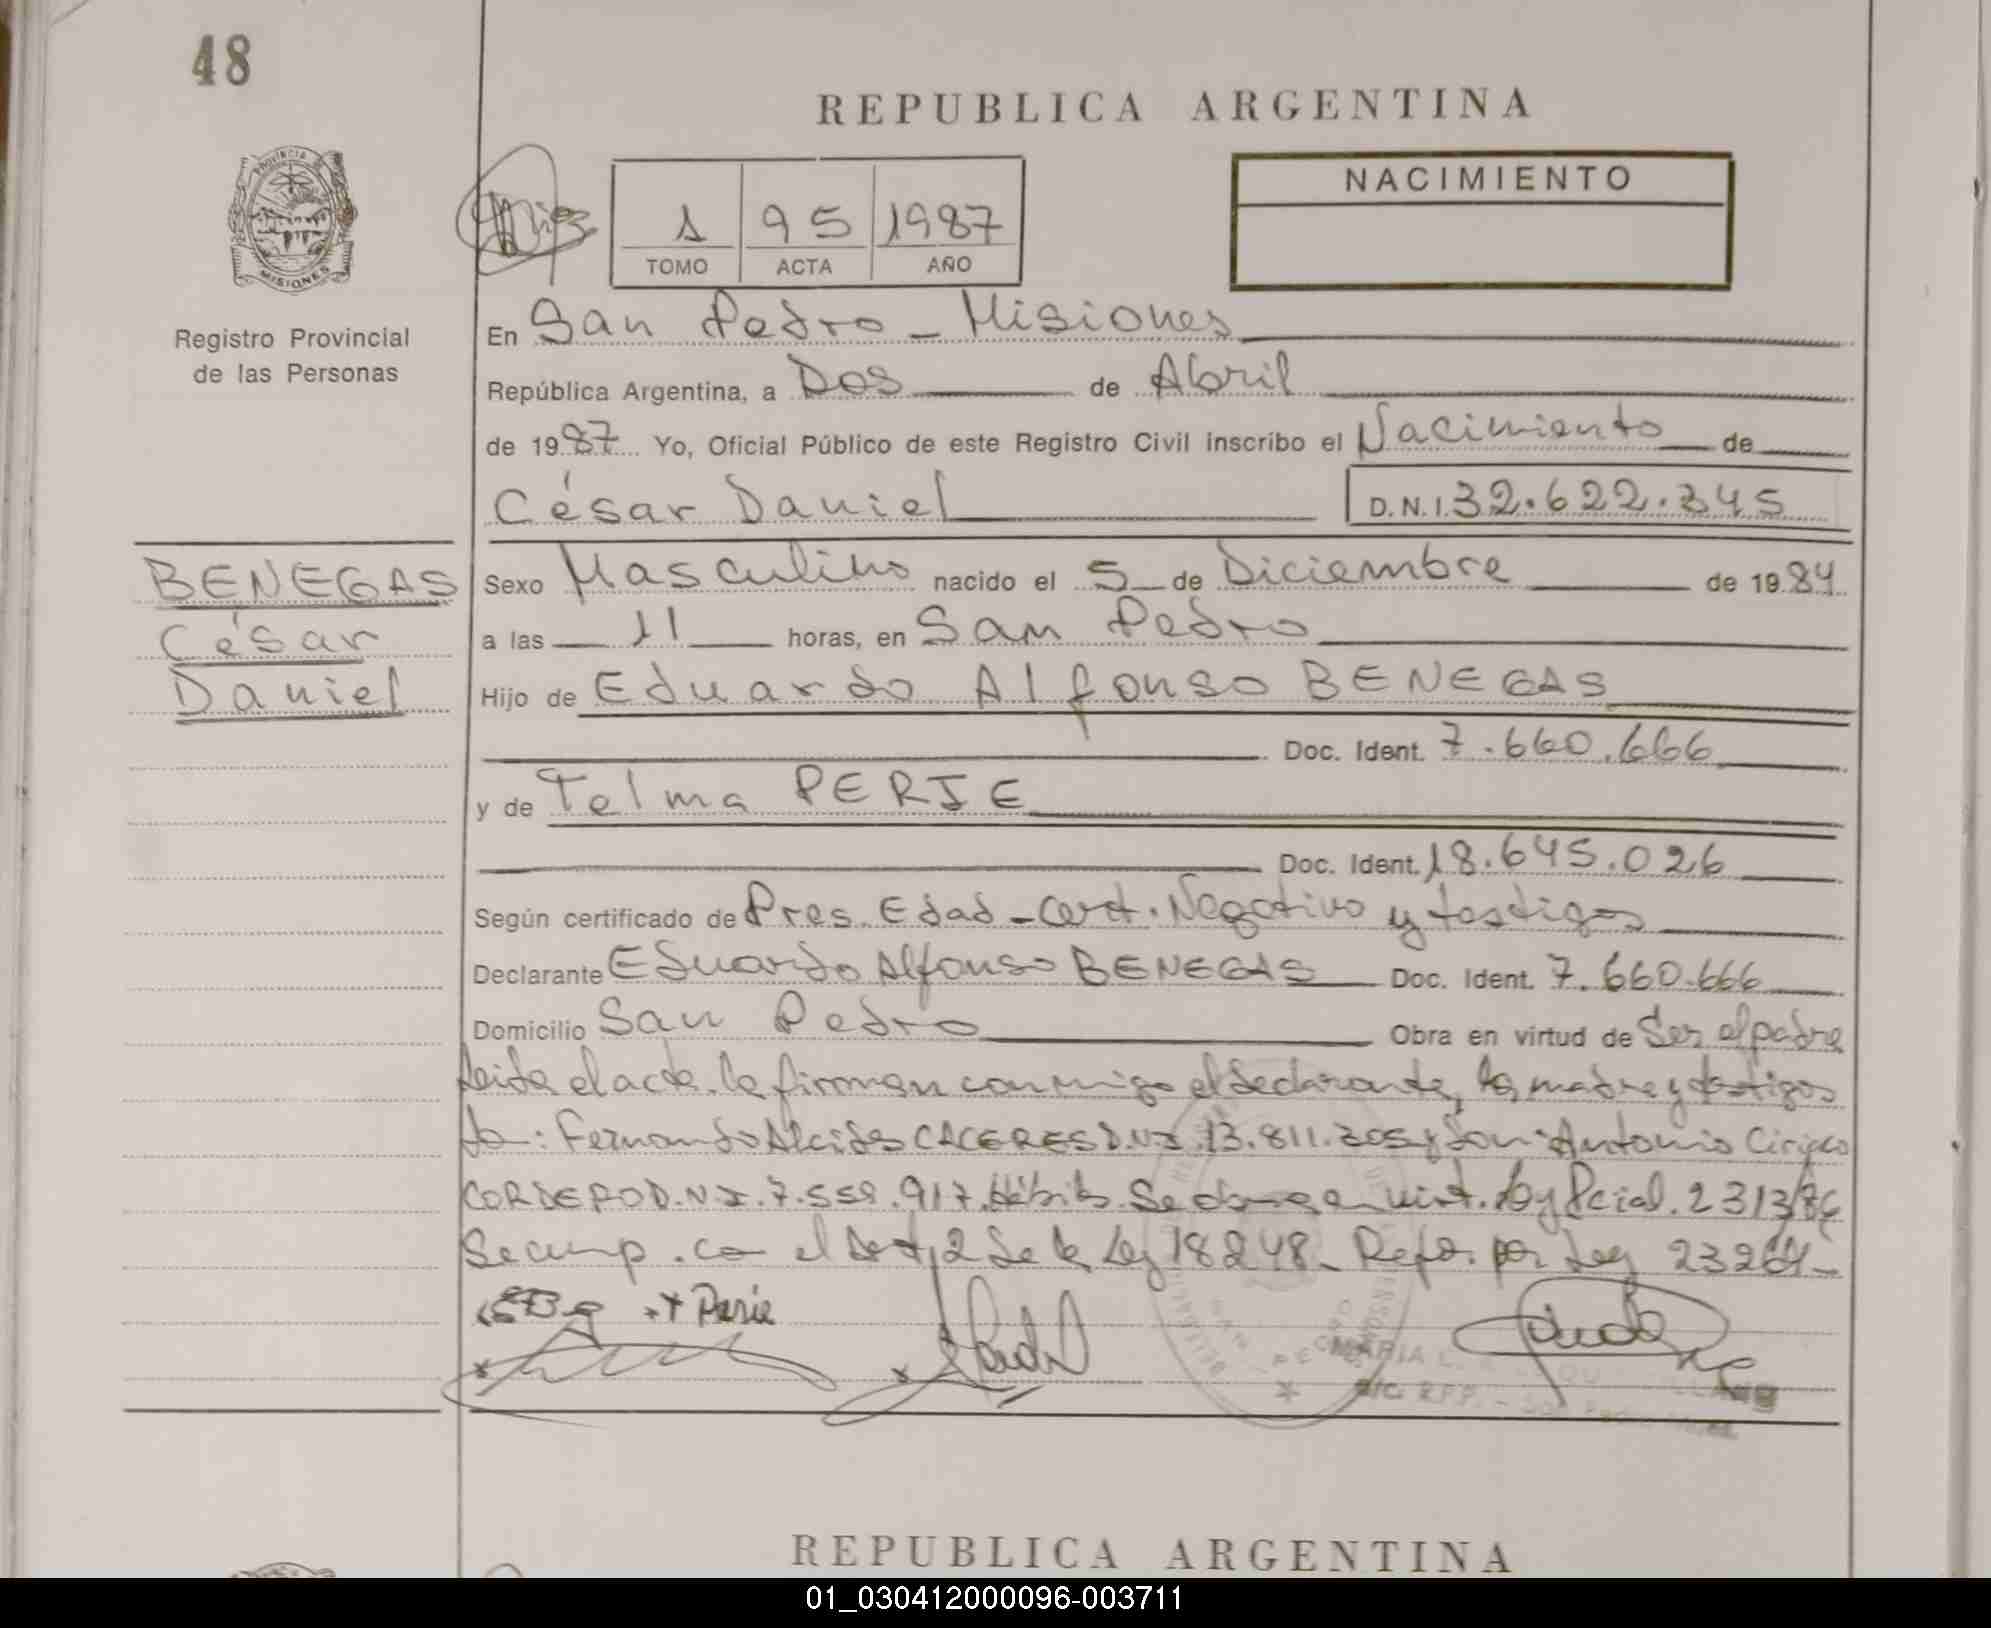 48
REPUBLICA ARGENTINA
PROVINCIA
MISIONES
Registro Provincial
de las Personas
1 95 1987
TOMO ACTA AÑO
NACIMIENTO
En San Pedro - Misiones
República Argentina, a Dos de Abril
de 1987 Yo, Oficial Público de este Registro Civil inscribo el Nacimiento de
César Daniel D.N.I. 32.622.345
BENEGAS
César
Daniel
Sexo Masculino nacido el 5 de Diciembre de 1984
a las 11 horas, en San Pedro
Hijo de Eduardo Alfonso BENEGAS
Doc. Ident. 7.660.666
y de Telma PERIE
Doc. Ident. 18.645.026
Según certificado de Pres. Edad - Cert. Negativo y testigos
Declarante Eduardo Alfonso BENEGAS Doc. Ident. 7.660.666
Domicilio San Pedro Obra en virtud de Ser el padre
Leida el acta la firman conmigo el declarante, la madre y testigos
Fernando Alcides CACERES D.N.I. 13.811.305 y Don: Antonio Ciriaco
CORDERO D.N.I. 7.559.917 Hábiles. Se en virt. Ley Pcial. 2313/86
Se cump. con el Art. 2 de la Ley 18248 - Refor. por Ley 23264 -
T Perie
MARIA L.
R.P.P. - San Pedro
REPUBLICA ARGENTINA
01_030412000096-003711